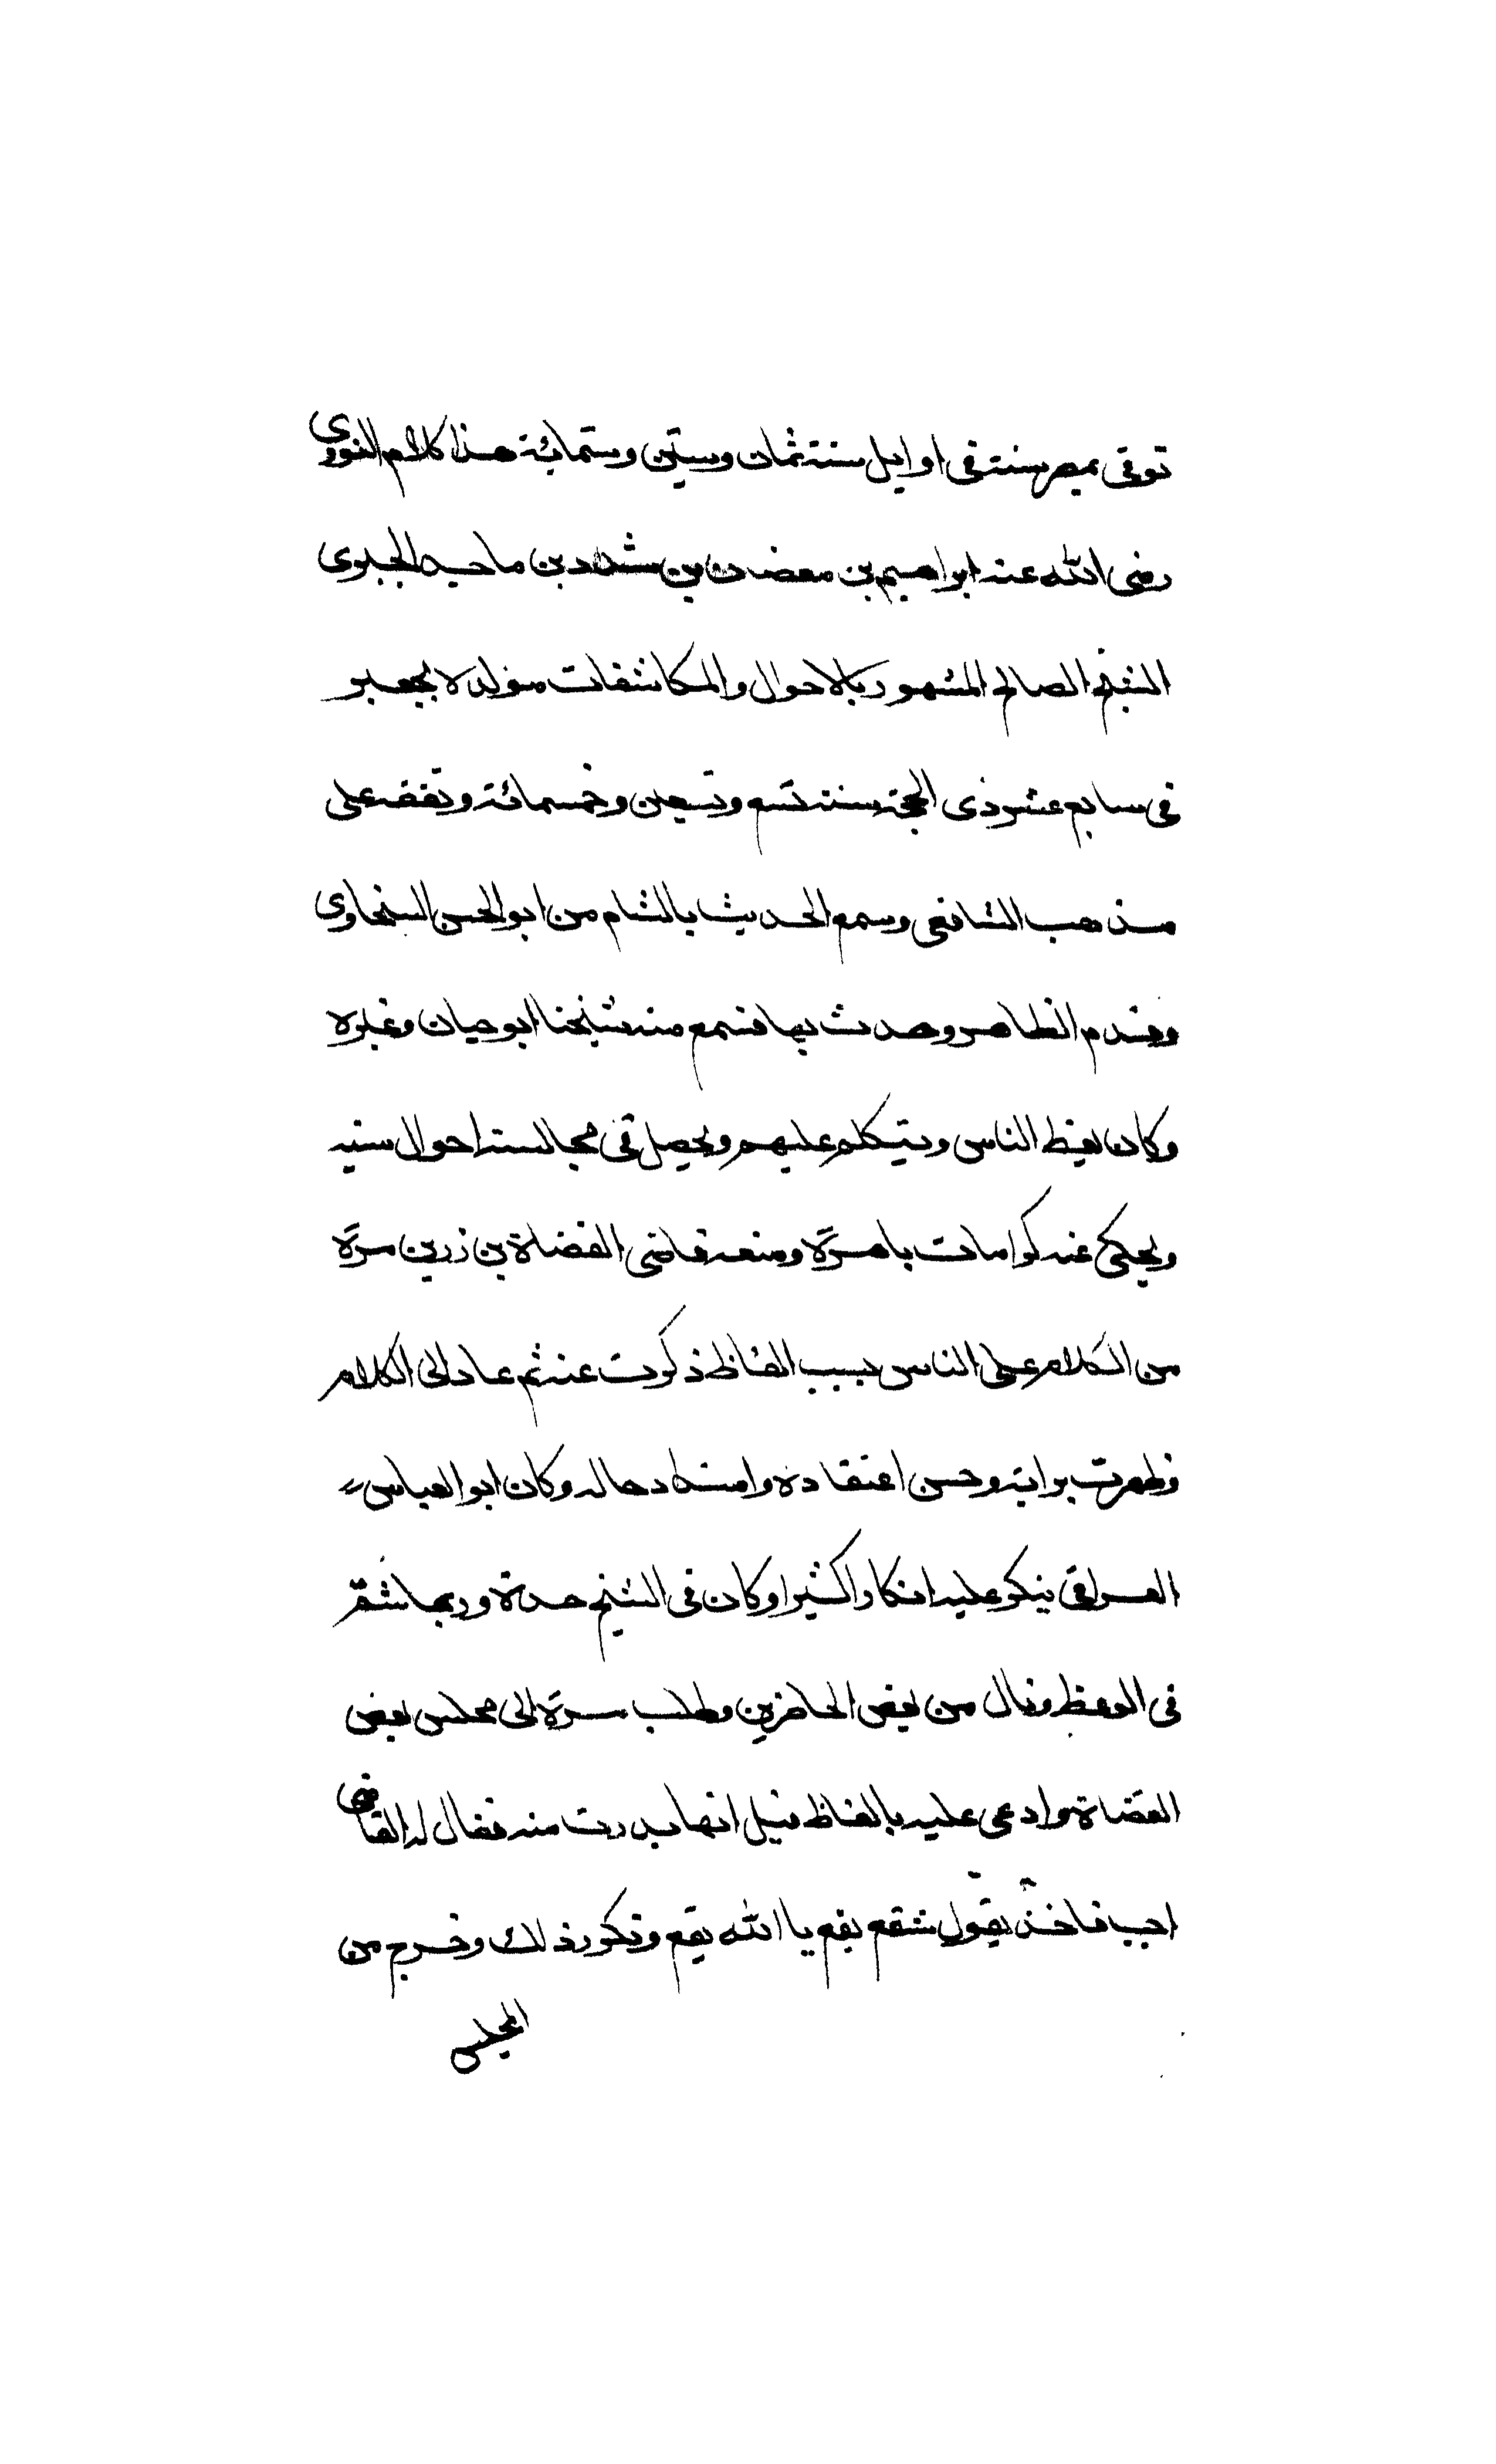 توفى بمصر سنة فى اوايل سنة ثمان وستين وستمائة هذا كلام النووى
رضى الله عنه ابراهيم بن معضاد بن شداد بن ماجد الجعبرى
الشيخ الصالح المشهور بالاحوال والمكاشفات مولده بجعبر
فى سابع عشر ذى الحجة سنة تسع وتسعين وخمسمائة وتفقه على
مذهب الشافعى وسمع الحديث بالشام من ابو الحسن السخاوى
وقدم القاهرة وحدث بها فسمع منه شيخنا ابو حيان وغيره
وكان يعظ الناس ويتكلم عليهم ويحصل فى مجالسته احوال سنيه
ويحكى عنه كرامات باهرة ومنعه قاضى القضاة بن زرين مرة
من الكلام على الناس بسبب الفاظ ذكرت عنه ثم عاد الى الكلام
وظهرت براته وحسن اعتقاده وامتداد حاله وكان ابو العباس
العراقى ينكر عليه انكارا كثيرا وكان فى الشيخ حدة وربما شتم
فى الوعظ ونال من بعض الحاضرين وطلب مرة الى مجلس بعض
القضاة وادعى عليه بالفاظ قيل انها بدرت منه فقال له القاضى
اجب فاخذ يقول شقع بقع يا الله يقع وتكرر ذلك وخرج من
المجلس